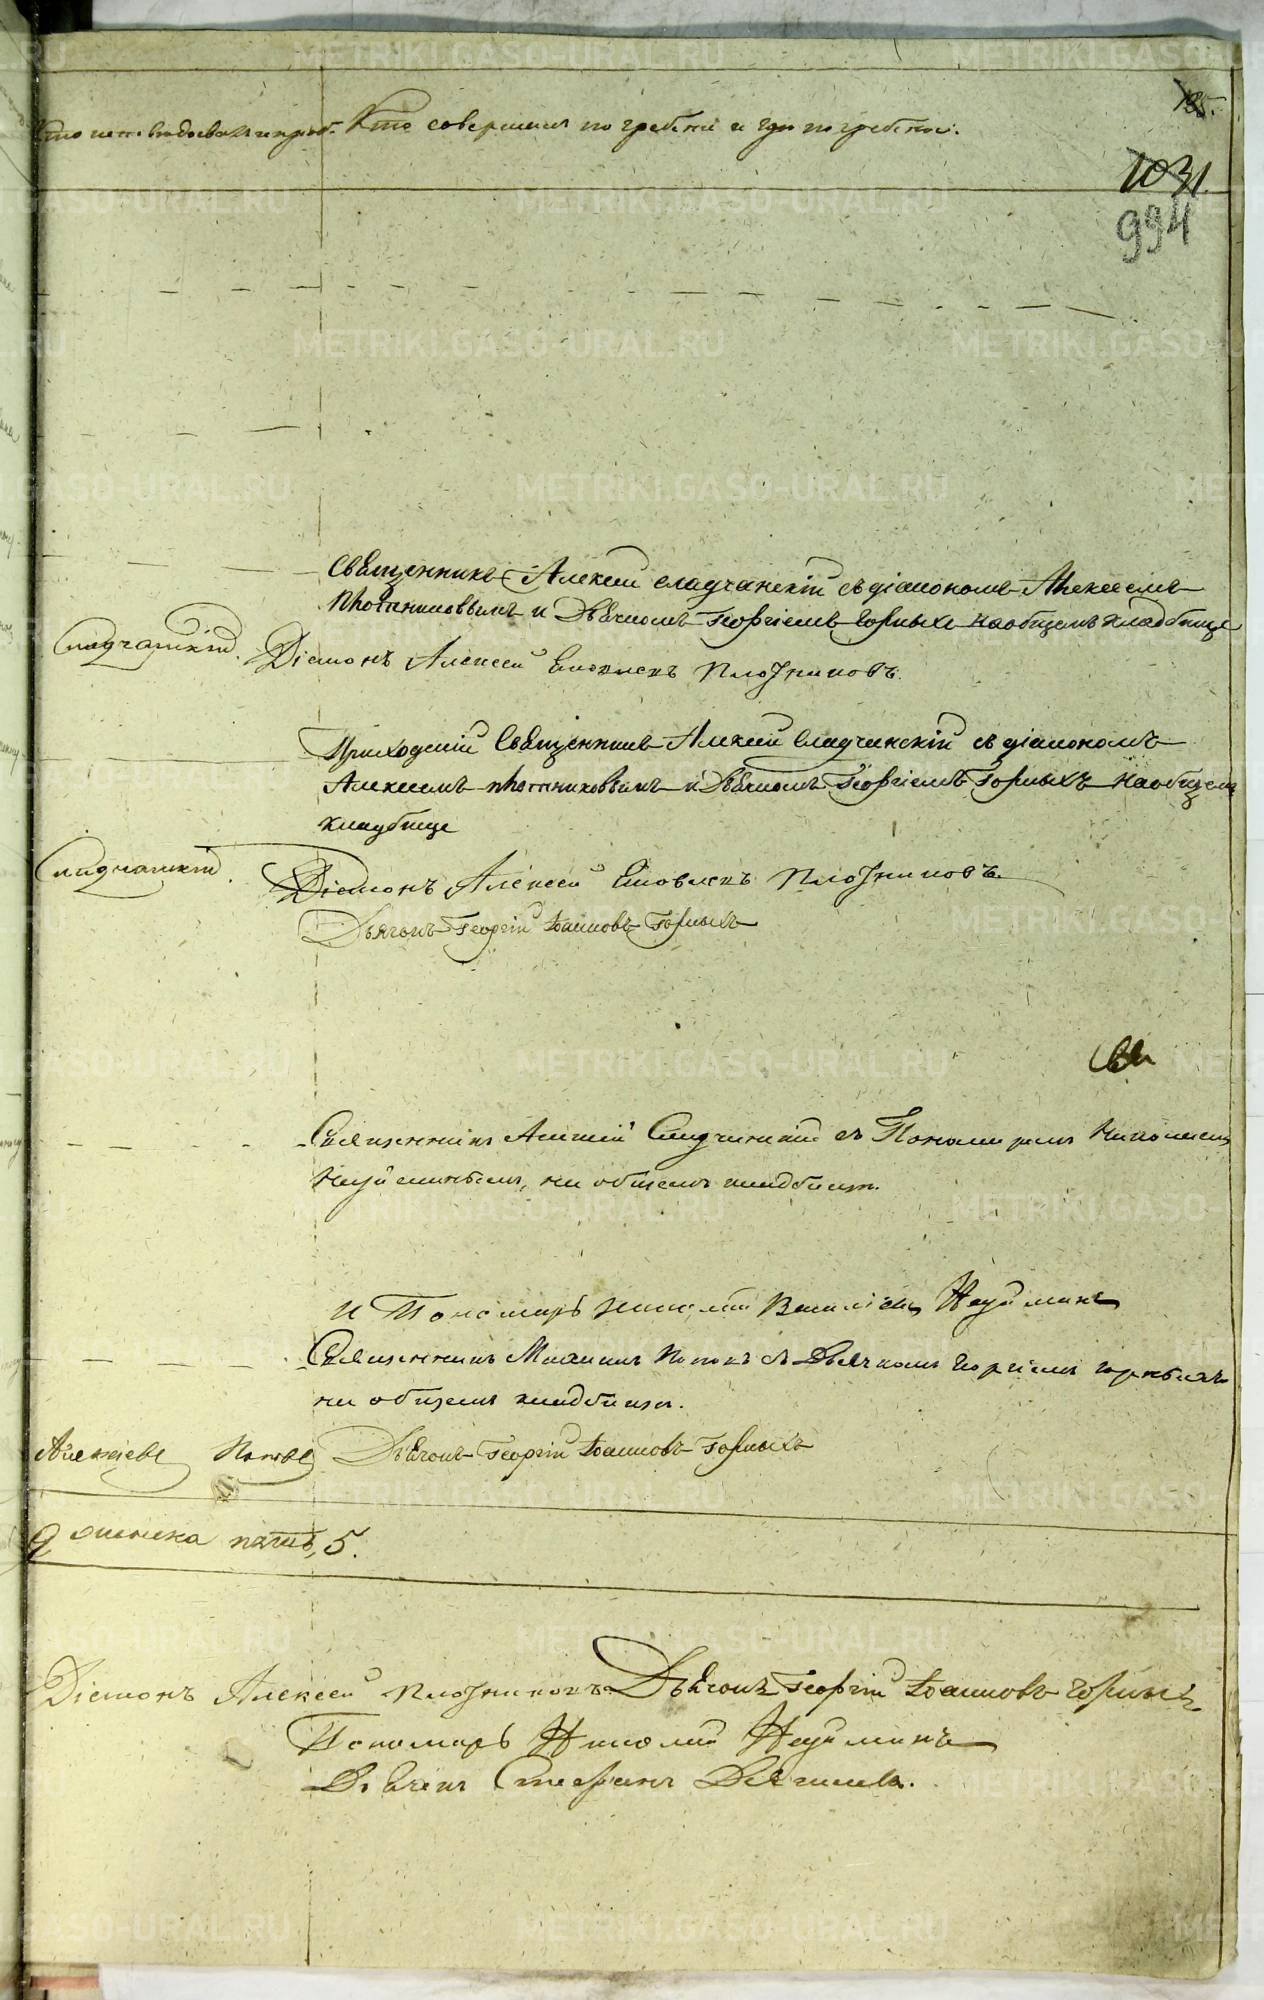 185.
Кто исповѣдовалъ и пріоб. Кто совершилъ погребеніе и гдѣ погребены.
1031.
994
Священникъ Алексій Сладчанскій съ діакономъ Алексеемъ
Плотниковымъ и Дьячкомъ Георгіемъ Горныхъ на общемъ кладбище
Сладчанскій. Діаконъ Алексей Плотниковъ.
Приходскій Священникъ Алексій Сладчанскій съ діакономъ
Алексеемъ Плотниковымъ и Дьячкомъ Георгіемъ Горныхъ на общемъ
кладбище
Сладчанскій. Діаконъ Алексей Плотниковъ.
Дьячокъ Георгій Іоанновъ Горныхъ
Священникъ Алексій Сладчанскій съ Пономаремъ Николаемъ
на общемъ кладбищѣ.
и Пономарь Николай Наумовъ
Священникъ Михаилъ Поповъ съ Дьячкомъ Георгіемъ Горныхъ
на общемъ кладбищѣ.
Поповъ Дьячокъ Георгій Іоанновъ Горныхъ
пять, 5.
Діаконъ Алексей Плотниковъ. Дьячокъ Георгій Іоанновъ Горныхъ
Пономарь Николай
Дьячекъ Стефанъ
METRIKI.GASO-URAL.RU